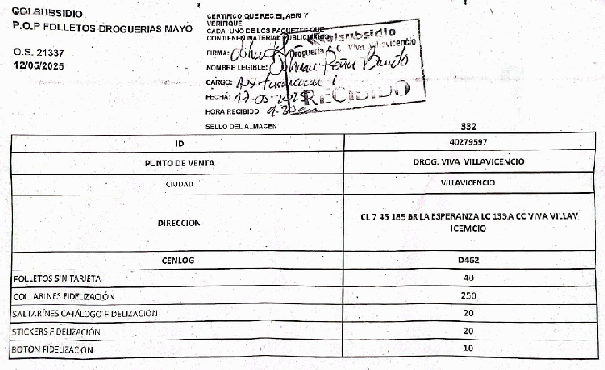 COLSUBSIDIO
P.O.P FOLLETOS DROGUERIAS MAYO
O.S. 21337
12/05/2025
CERTIFICO QUE RECIBI, ABRI Y
VERIFIQUE
CADA UNO DE LOS PAQUETES QUE
CONTIENEN MATERIAL PUBLICITARIO
colsubsidio
Drogueria CC Viva Villavicencio
FIRMA:
NOMBRE LEGIBLE:
CARGO:
FECHA:
RECIBIDO
HORA RECIBIDO
SELLO DEL ALMACEN
332
ID 40279597
PUNTO DE VENTA DROG. VIVA VILLAVICENCIO
CIUDAD VILLAVICENCIO
DIRECCION CL 7 45 185 BR LA ESPERANZA LC 133 A CC VIVA VILLAV
ICEMCIO
CENLOG D462
FOLLETOS SIN TARJETA 40
COLLARINES FIDELIZACIÓN 250
SALTARINES CATÁLOGO FIDELIZACIÓN 20
STICKERS FIDELIZACIÓN 20
BOTON FIDELIZACIÓN 10